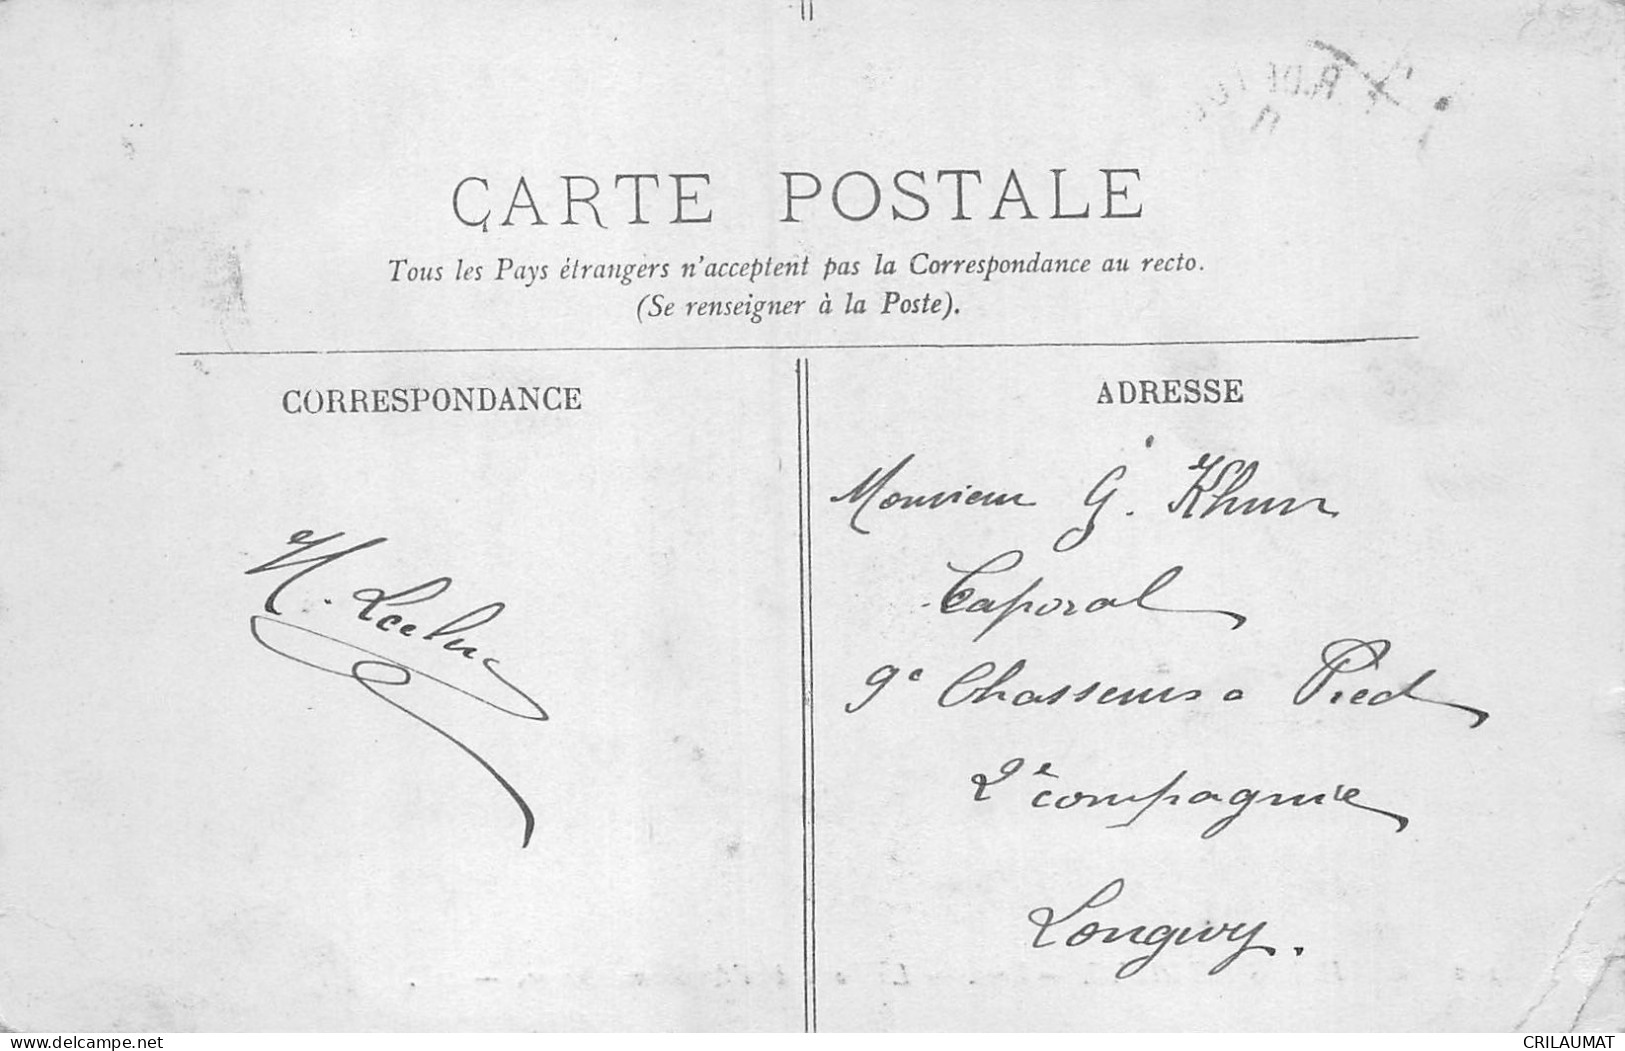 CARTE POSTALE
Tous les Pays étrangers n'acceptent pas la Correspondance au recto.
(Se renseigner à la Poste).
CORRESPONDANCE
ADRESSE
Monsieur G. Khun
Caporal
9e Chasseurs a Pied
2e compagnie
Longwy.
www.delcampe.net
CRILAUMAT